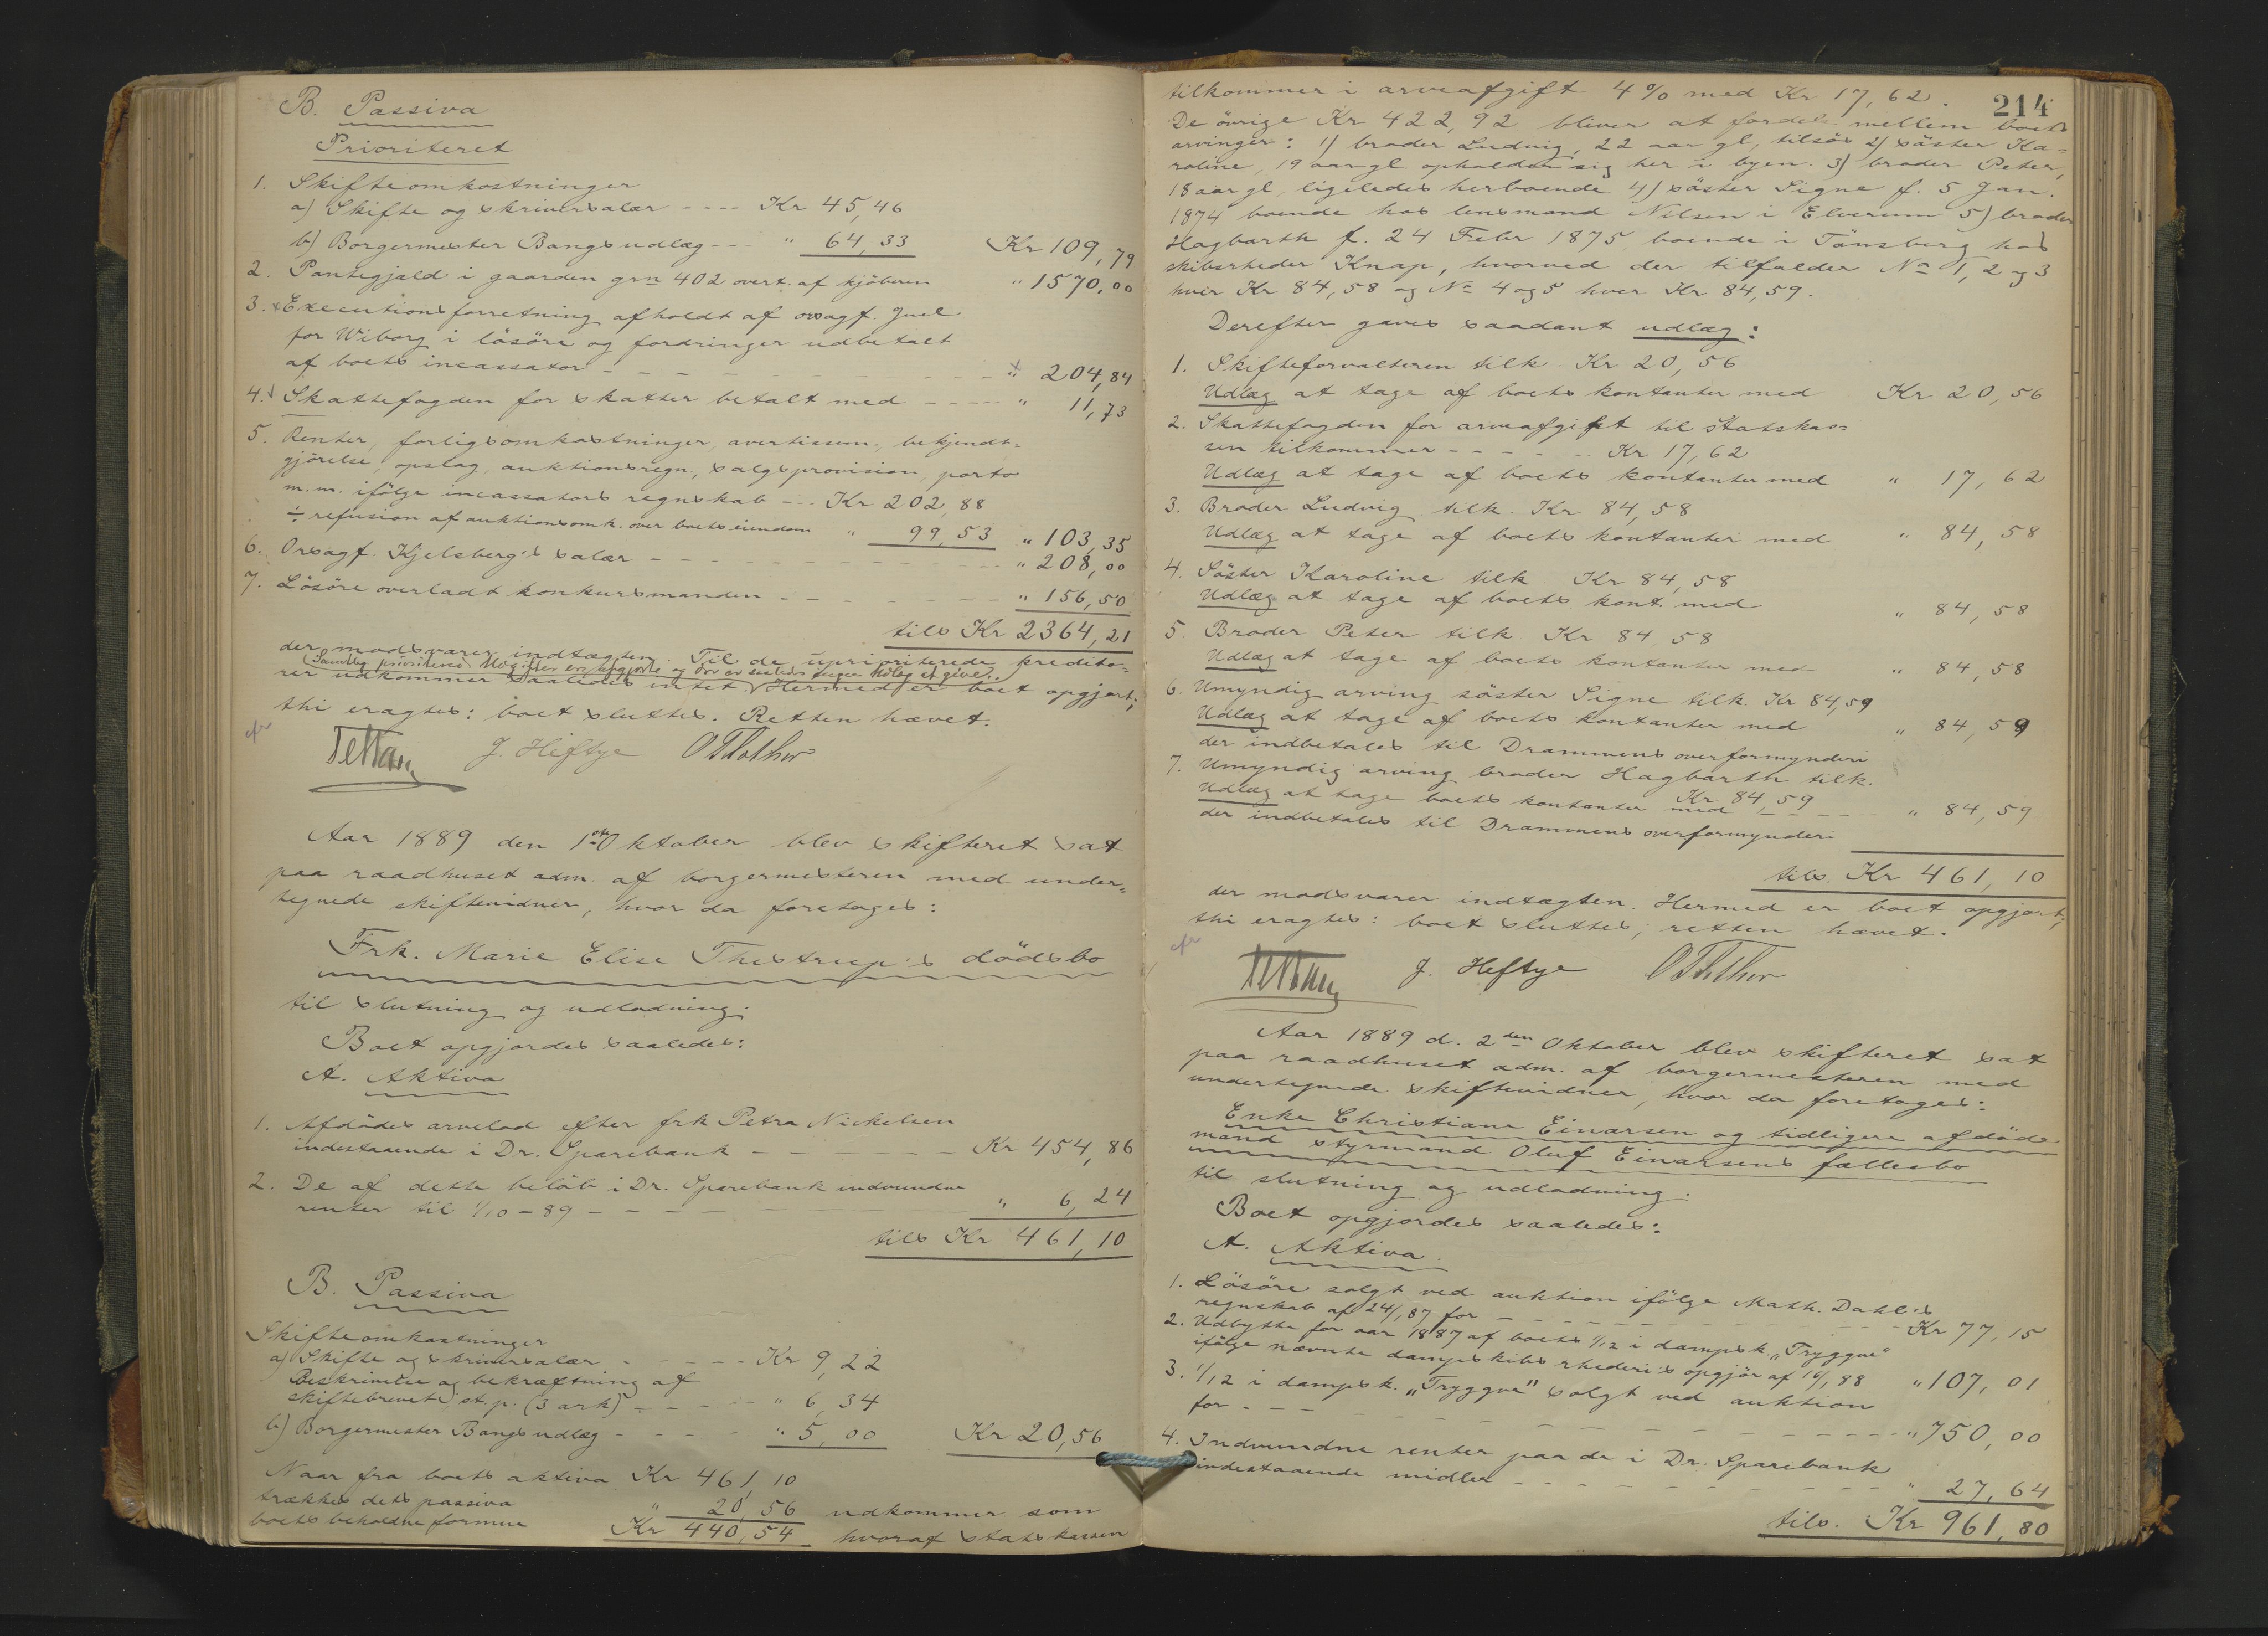 B. Passiva
Prioriteret
1. Skifteomkostninger
a) Skifte og skriversalær ---- Kr 45,46
b) Borgermester Bangs udlæg --- " 64,33 Kr 109,79
2. Pantegjæld i gaarden grn 402 overt. af kjöberen " 1570,00
3. Executionsforretning afholdt af ovsagf. Juel
for Wiborg i lösöre og fordringer udbetalt
af boets incassator - - - - " 204,84
4. Skattefogden for skatter betalt med ---- " 11,73
5. Renter, forligsomkostninger, avertissem., bekjendt=
gjörelse, opslag, auktionsregn., salgsprovision, porto
m.m. ifölge incassators regnskab --- Kr 202,88
÷ refusion af auktionsomk. over boets eiendom " 99,53 " 103,35
6. Orsagf. Kjelsberg's salær - - - - " 208,00
7. Lösöre overladt konkursmanden - - - - " 156,50
tils Kr 2364,21
der modsvarer indtægten. Til de uprioriterede kredito=
Samtlig prioriterede Udgifter ere afgjorte og der er saaledes ingen Udlæg at give.
rer udkommer saaledes intet. Hermed er boet opgjort;
thi eragtes: boet sluttes. Retten hævet.
J. Heftye
Aar 1889 den 1ste Oktober blev skifteret sat
paa raadhuset adm. af borgermesteren med under=
tegnede skiftevidner, hvor da foretoges:
Frk. Marie Elise Thestrup's dödsbo
til slutning og udlodning.
Boet opgjordes saaledes:
A. Aktiva
1. Afdödes arvelod efter frk Petra Nickelsen
indestaaende i Dr. Sparebank - - - - - Kr 454,86
2. De af dette belöb i Dr. Sparebank indvundne
renter til 1/10-89 - - - - " 6,24
tils Kr 461,10
B. Passiva
Skifteomkostninger
a) Skifte og skriversalær - - - - Kr 9,22
Beskrivelse og bekræftning af
skiftebrevet st. p. (3 ark) - - - - " 6,34
b) Borgermester Bangs udlæg - - - - " 5,00 Kr 20,56
Naar fra boets aktiva Kr 461,10
trækkes dets passiva " 20,56 udkommer som
boets beholdne formue Kr 440,54 hvoraf statskassen
214
tilkommer i arveafgift 4% med Kr 17,62.
De övrige Kr 422,92 bliver at fordele mellem boets
arvinger: 1) broder Ludvig, 22 aar gl, tilsös 2) söster Ka=
roline, 19 aar gl. opholder sig her i byen. 3) broder Peter,
18 aar gl, ligeledes herboende 4) söster Signe f. 5 Jan.
1874 boende hos lensmand Nilsen i Elverum 5) broder
Hagbarth f. 24 Febr 1875 boende i Tönsberg hos
skibsrheder Knap, hvorved der tilfalder No 1, 2 og 3
hver Kr 84,58 og No 4 og 5 hver Kr 84,59.
Derefter gaves saadant udlæg:
1. Skifteforvalteren tilk. Kr 20,56
Udlæg at tage af boets kontanter med Kr 20,56
2. Skattefogden for arveafgift til statskas=
sen tilkommer - - - - - Kr 17,62
Udlæg at tage af boets kontanter med " 17,62
3. Broder Ludvig tilk. Kr 84,58
Udlæg at tage af boets kontanter med " 84,58
4. Söster Karoline tilk. Kr 84,58
Udlæg at tage af boets kont. med " 84,58
5. Broder Peter tilk Kr 84 58
Udlæg at tage af boets kontanter med " 84,58
6. Umyndig arving söster Signe tilk. Kr 84,59
Udlæg at tage af boets kontanter med " 84,59
der indbetales til Drammens overformynderi
7. Umyndig arving broder Hagbarth tilk.
Kr 84,59
Udlæg at tage boets kontanter med - - - - " 84,59
der indbetales til Drammens overformynderi
tils. Kr 461,10
der modsvarer indtægten. Hermed er boet opgjort;
thi eragtes: boet sluttes; retten hævet.
J. Heftye
Aar 1889 d. 2den Oktober blev skifteret sat
paa raadhuset adm. af borgermesteren med
undertegnede skiftevidner, hvor da foretoges:
Enke Christiane Einarsen og tidligere afdöde
mand styrmand Oluf Einarsens fællesbo
til slutning og udlodning.
Boet opgjordes saaledes:
A. Aktiva.
1. Lösöre solgt ved auktion ifölge Math. Dahl's
regnskab af 24/1 87 for - - - - Kr 77,15
2. Udbytte for aar 1887 af boets 1/12 i dampsk. "Tryggve"
ifölge nævnte dampskibs rhederi's opgjör af 10/1 88 " 107,01
3. 1/12 i dampsk. "Tryggve" solgt ved auktion
for - - - - " 750,00
4. Indvundne renter paa de i Dr. Sparebank
indestaaende midler - - - - " 27,64
tils. Kr 961,80